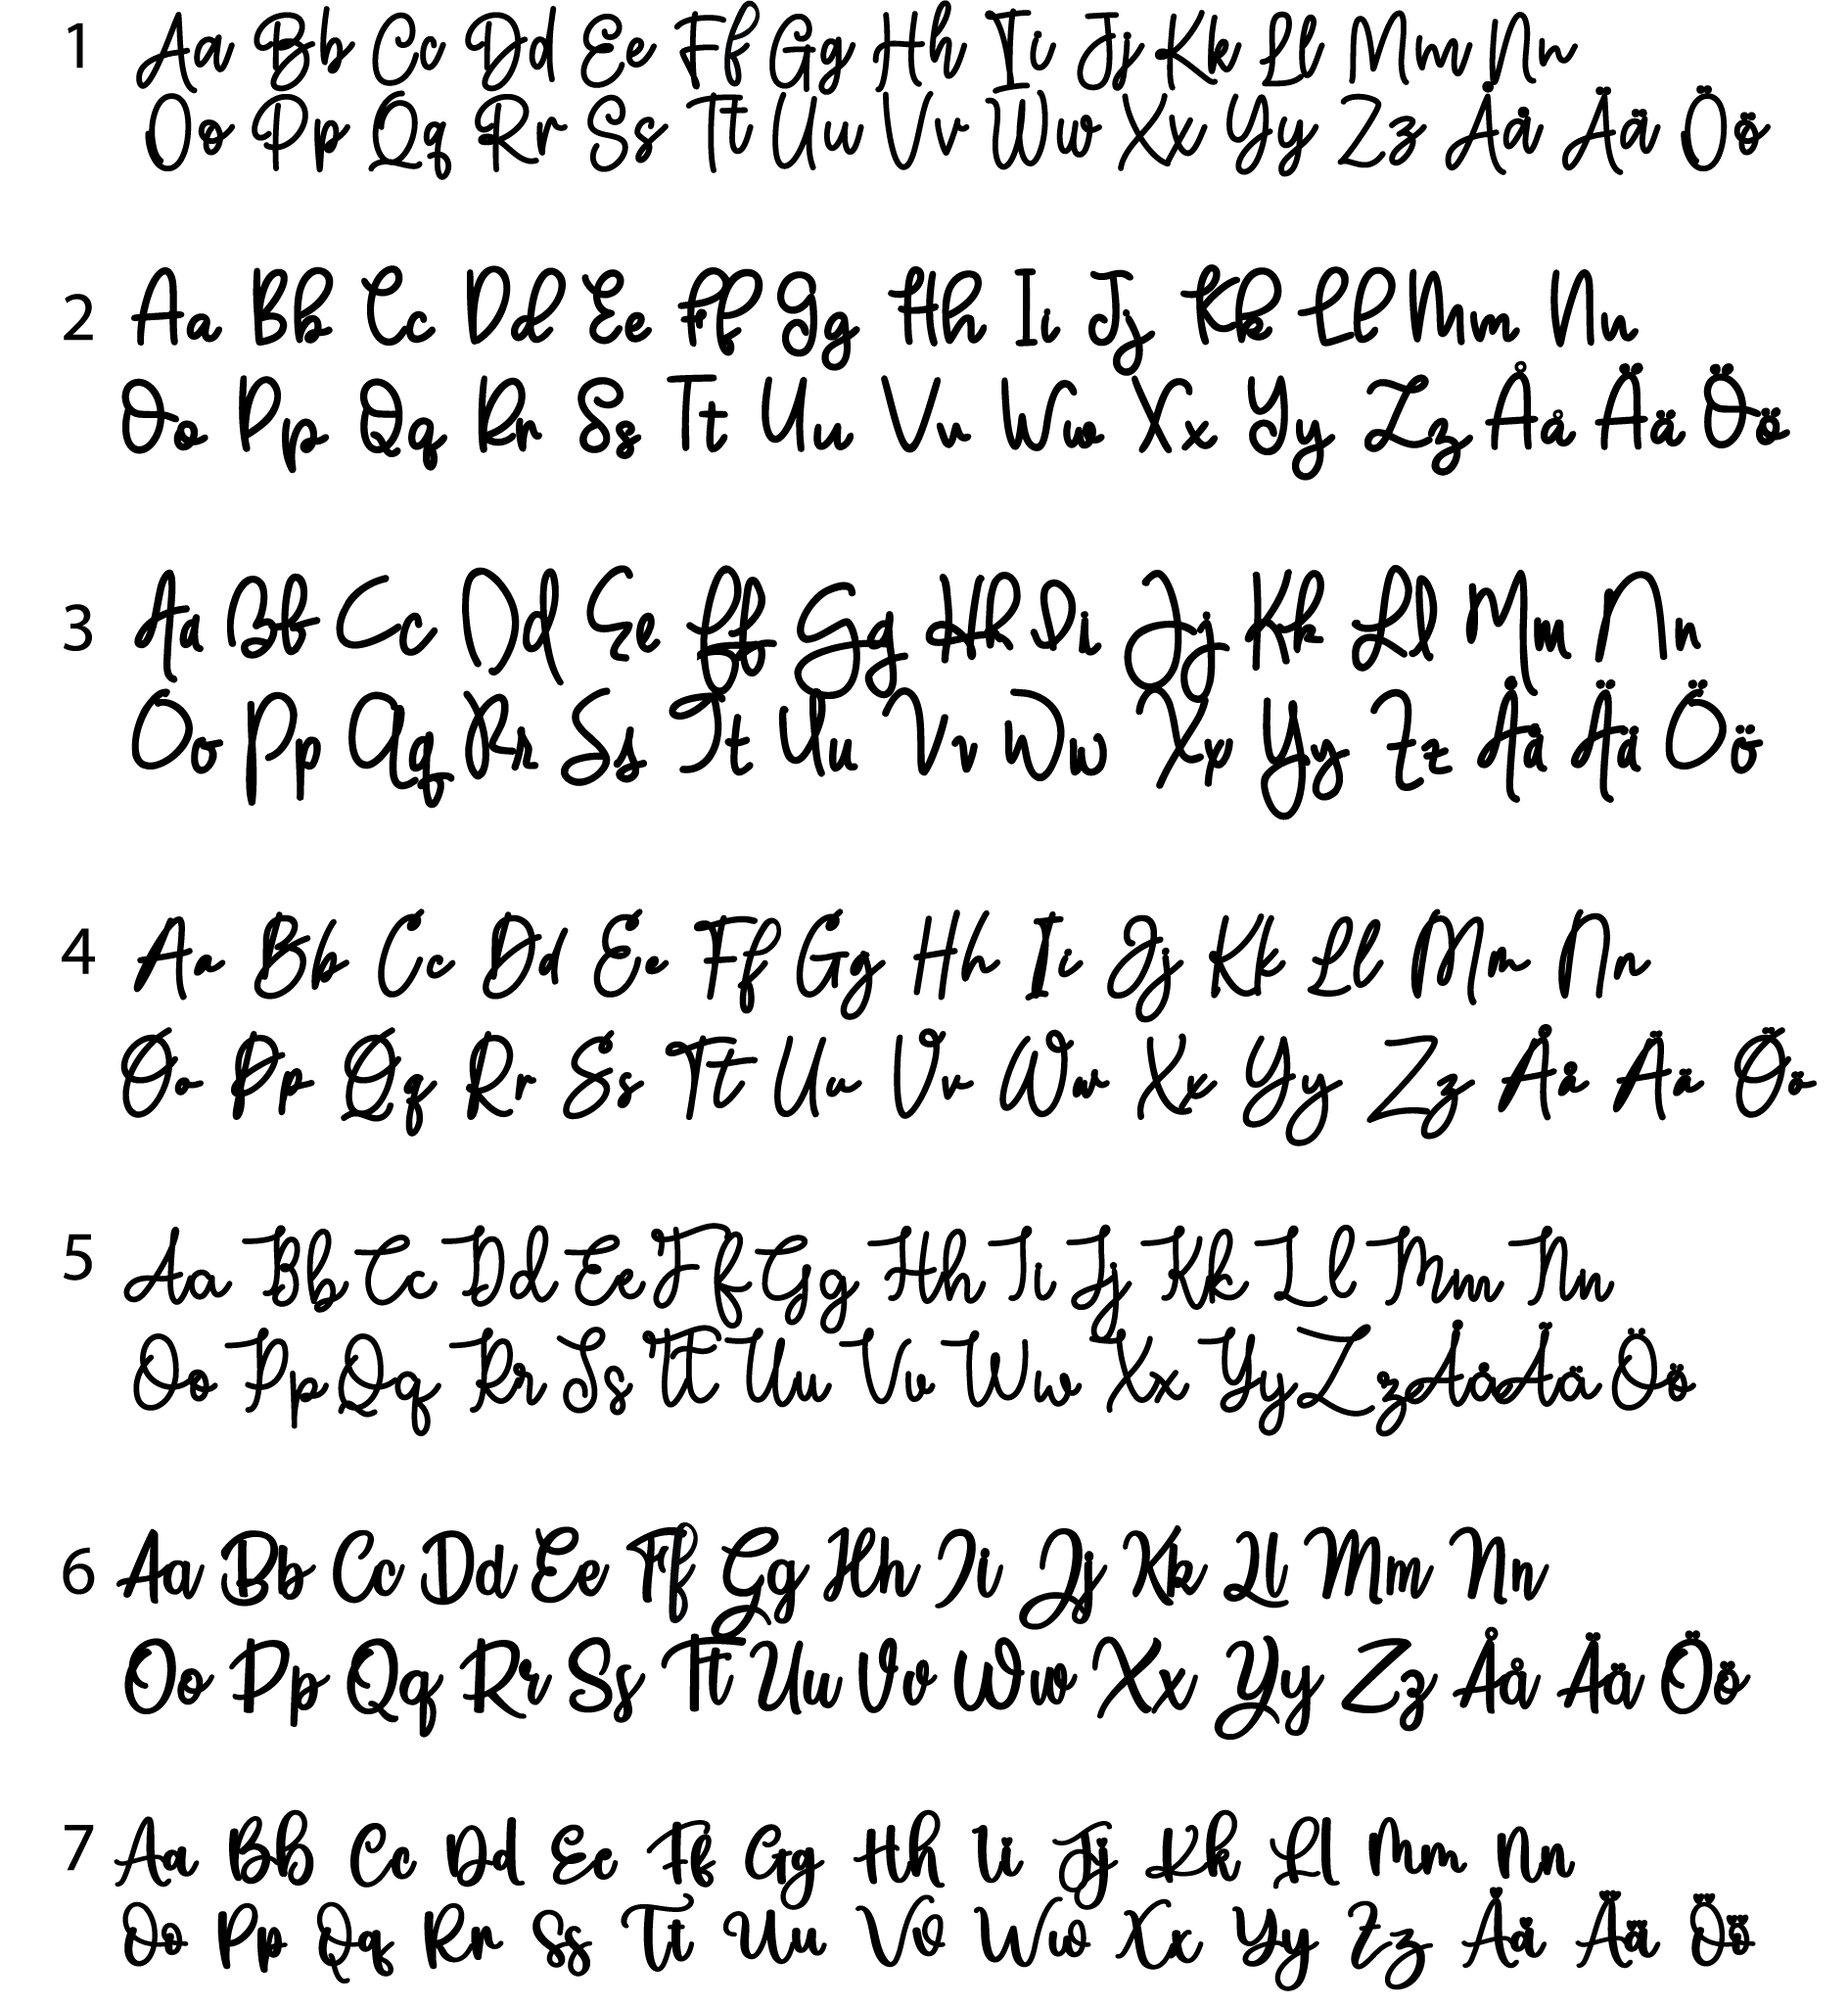 1 Aa Bb Cc Dd Ee Ff Gg Hh Ii Jj Kk Ll Mm Nn
Oo Pp Qq Rr Ss Tt Uu Vv Ww Xx Yy Zz Åå Ää Öö
2 Aa Bb Cc Dd Ee Ff Gg Hh Ii Jj Kk Ll Mm Nn
Oo Pp Qq Rr Ss Tt Uu Vv Ww Xx Yy Zz Åå Ää Öö
3 Aa Bb Cc Dd Ee Ff Gg Hh Ii Jj Kk Ll Mm Nn
Oo Pp Qq Rr Ss Tt Uu Vv Ww Xx Yy Zz Åå Ää Öö
4 Aa Bb Cc Dd Ee Ff Gg Hh Ii Jj Kk Ll Mm Nn
Oo Pp Qq Rr Ss Tt Uu Vv Ww Xx Yy Zz Åå Ää Öö
5 Aa Bb Cc Dd Ee Ff Gg Hh Ii Jj Kk Ll Mm Nn
Oo Pp Qq Rr Ss Tt Uu Vv Ww Xx Yy Zz Åå Ää Öö
6 Aa Bb Cc Dd Ee Ff Gg Hh Ii Jj Kk Ll Mm Nn
Oo Pp Qq Rr Ss Tt Uu Vv Ww Xx Yy Zz Åå Ää Öö
7 Aa Bb Cc Dd Ee Ff Gg Hh Ii Jj Kk Ll Mm Nn
Oo Pp Qq Rr Ss Tt Uu Vv Ww Xx Yy Zz Åå Ää Öö